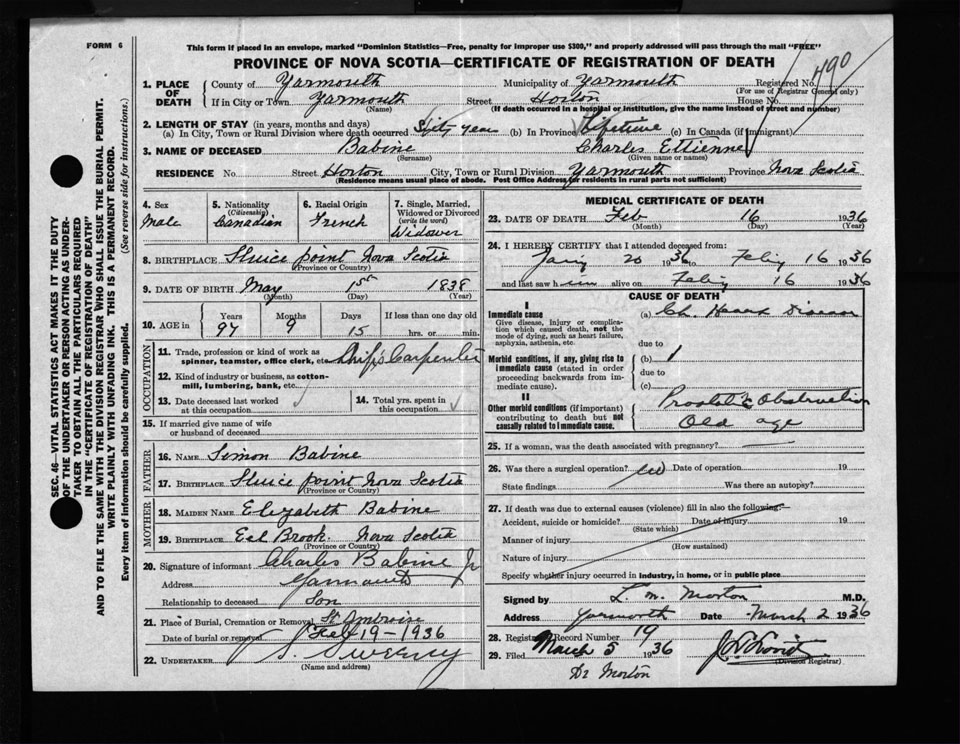 FORM 6
This form if placed in an envelope, marked "Dominion Statistics—Free, penalty for improper use $300," and properly addressed will pass through the mail "FREE"
PROVINCE OF NOVA SCOTIA—CERTIFICATE OF REGISTRATION OF DEATH
1. PLACE OF DEATH County of Yarmouth Municipality of Yarmouth Registered No. 490
(For use of Registrar General only)
If in City or Town Yarmouth Street Horton House No.
(Name) (If death occurred in a hospital or institution, give the name instead of street and number)
2. LENGTH OF STAY (in years, months and days)
(a) In City, Town or Rural Division where death occurred Sixty years (b) In Province Lifetime (c) In Canada (if immigrant)
3. NAME OF DECEASED Babine Charles Ettienne
(Surname) (Given name or names)
RESIDENCE No. Street Horton City, Town or Rural Division Yarmouth Province Nova Scotia
(Residence means usual place of abode. Post Office Address for residents in rural parts not sufficient)
SEC. 46—VITAL STATISTICS ACT MAKES IT THE DUTY
OF THE UNDERTAKER OR PERSON ACTING AS UNDER-
TAKER TO OBTAIN ALL THE PARTICULARS REQUIRED
IN THE "CERTIFICATE OF REGISTRATION OF DEATH"
AND TO FILE THE SAME WITH THE DIVISION REGISTRAR WHO SHALL ISSUE THE BURIAL PERMIT.
WRITE PLAINLY WITH UNFADING INK. THIS IS A PERMANENT RECORD.
Every item of information should be carefully supplied. (See reverse side for instructions.)
4. Sex Male
5. Nationality (Citizenship) Canadian
6. Racial Origin French
7. Single, Married, Widowed or Divorced (write the word) Widower
8. BIRTHPLACE Sluice point Nova Scotia
(Province or Country)
9. DATE OF BIRTH May 1st 1838
(Month) (Day) (Year)
10. AGE in Years Months Days If less than one day old
97 9 15 hrs. or min.
OCCUPATION
11. Trade, profession or kind of work as spinner, teamster, office clerk, etc. Ship's Carpenter
12. Kind of industry or business, as cotton-mill, lumbering, bank, etc.
13. Date deceased last worked at this occupation
14. Total yrs. spent in this occupation
15. If married give name of wife or husband of deceased
FATHER
16. NAME Simon Babine
17. BIRTHPLACE Sluice point Nova Scotia
(Province or Country)
MOTHER
18. MAIDEN NAME Elizabeth Babine
19. BIRTHPLACE Eel Brook. Nova Scotia
(Province or Country)
20. Signature of informant Charles Babine Jr
Address Yarmouth
Relationship to deceased Son
21. Place of Burial, Cremation or Removal St Ambroise
Date of burial or removal Feb 19-1936
22. UNDERTAKER Sweeny
(Name and address)
MEDICAL CERTIFICATE OF DEATH
23. DATE OF DEATH Feb 16 1936
(Month) (Day) (Year)
24. I HEREBY CERTIFY that I attended deceased from:
20 1936 to 16 1936
and last saw him alive on 16 1936
CAUSE OF DEATH
I
Immediate cause (a) Ch. Heart Disease
Give disease, injury or complication which caused death, not the mode of dying, such as heart failure, asphyxia, asthenia, etc.
due to
Morbid conditions, if any, giving rise to immediate cause (stated in order proceeding backwards from immediate cause).
(b)
due to
(c)
II
Other morbid conditions (if important) contributing to death but not causally related to immediate cause.
Obstruction
Old age
25. If a woman, was the death associated with pregnancy?
26. Was there a surgical operation? Date of operation 19
State findings Was there an autopsy?
27. If death was due to external causes (violence) fill in also the following:
Accident, suicide or homicide? Date of injury 19
(State which)
Manner of injury
(How sustained)
Nature of injury
Specify whether injury occurred in industry, in home, or in public place
Signed by L. M. Morton M.D.
Address Yarmouth Date March 2 1936
28. Registrar's Record Number 19
29. Filed March 5 1936
(Division Registrar)
Dr Morton